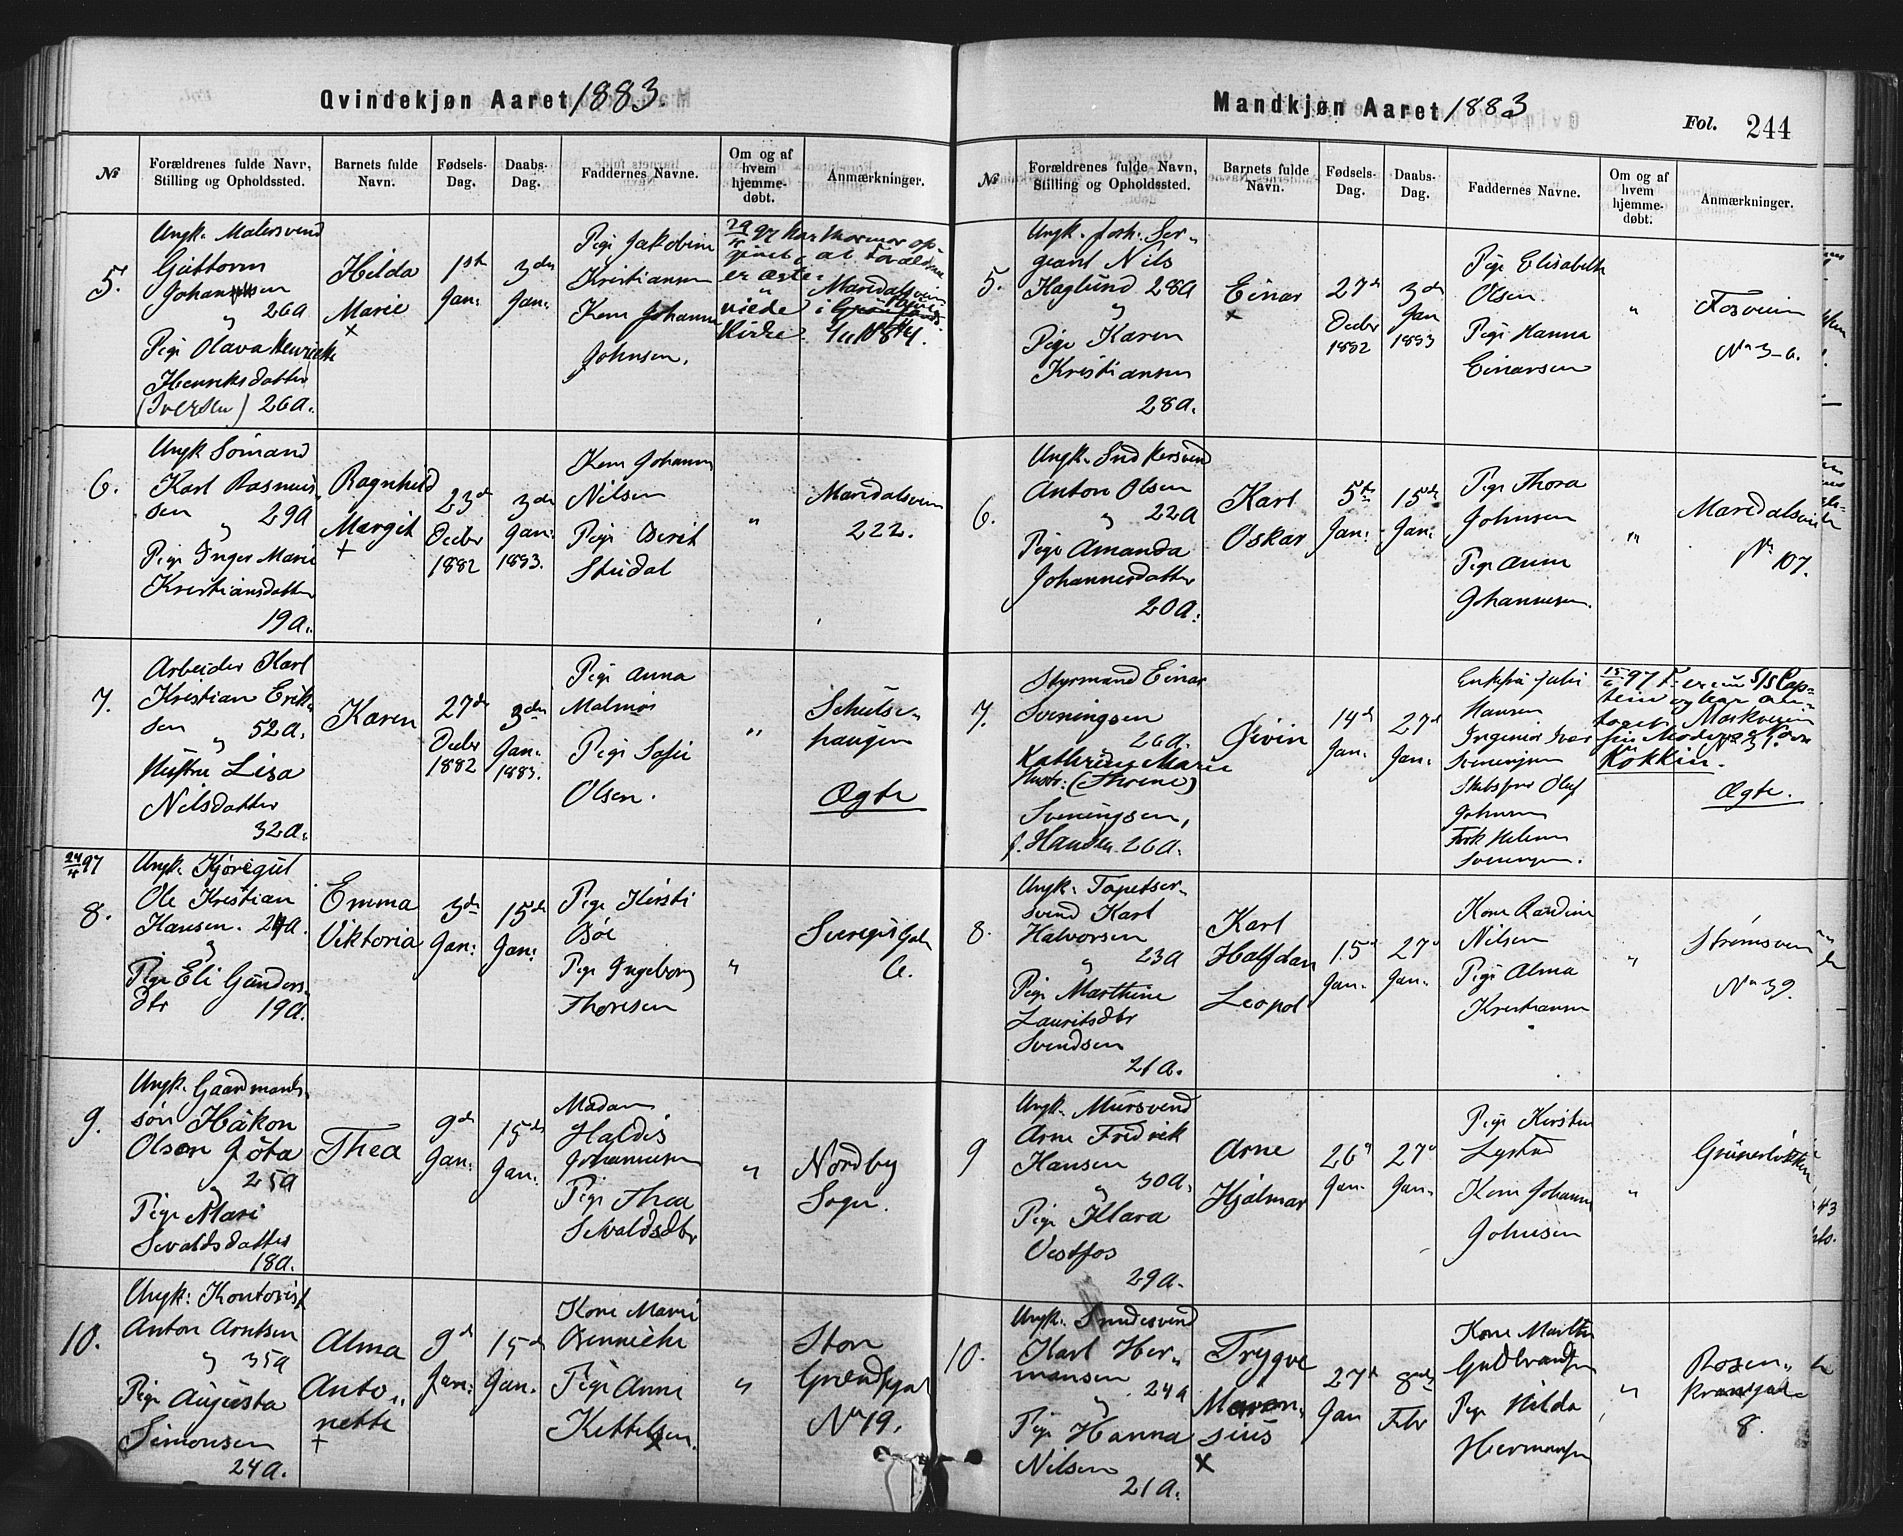 Qvindekjøn Aaret 1883.
№
Forældrenes fulde Navn,
Stilling og Opholdssted.
Barnets fulde
Navn.
Fødsels-
Dag.
Daabs-
Dag.
Faddernes Navne.
Om og af
hvem
hjemme-
døbt.
Anmærkninger.
5.
Ungk. Malersvend
Guttorm
Johansen
" 26a
Pige Olava Henriette
Henriksdatter
(Iversen) 26a.
Hilda
Marie
×
1ste
Jan:
3die
Jan:
Pige Jakobine
Kristiansen
Kone Johanne
Johnsen.
29/4 97 har Mormor op-
givet, at Forældrene
er ægte-
viede
Kirke
Maridalsvein
i
1/11 1884.
6.
Ungk Sömand
Karl Rasmus-
sen " 29a
Pige Inger Marie
Kristiansdatter
19a.
Ragnhild
Margit
+
23de
Decbr
1882
3die
Jan:
1883.
Kone Johanne
Nilsen
Pige Berit
Stüdal
"
Maridalsvein
222.
7.
Arbeider Karl
Kristian Erik-
sen " 52a.
Hustru Lisa
Nilsdatter
32a.
Karen
27de
Decbr
1882
3die
Jan:
1883.
Pige Anna
Malmøi
Pige Sofie
Olsen.
"
Schulse-
haugen
Ægte
24/4 97
8.
Ungk. Kjöregut
Ole Kristian
Hansen. 24a.
"
Pige Eli Gunders-
dtr 19a.
Emma
Viktoria
3die
Jan:
15de
Jan:
Pige Kirsti
Böe
Pige Ingeborg
Thoresen
"
6.
9.
Ungk. Gaardmands-
søn Håkon
Olsen Göta
25a
"
Pige Mari
Sevaldsdatter
18a.
Thea
9de
Jan:
15de
Jan:
Madam
Haldis
Johannesen
Pige Thea
Sevaldsdtr
"
Nordby
Sogn.
10.
Ungk: Kontorist
Anton Arntsen
" 35a
Pige Augusta
Simonsen
24a.
Alma
Anto-
nette
+
9de
Jan:
15de
Jan.
Kone Marie
Bennecke
Pige Anne
Kettelsen.
"
Store
Grændsegade
No 19.
Mandkjøn Aaret 1883
Fol. 244
№
Forældrenes fulde Navn,
Stilling og Opholdssted.
Barnets fulde
Navn.
Fødsels-
Dag.
Daabs-
Dag.
Faddernes Navne.
Om og af
hvem
hjemme-
døbt.
Anmærkninger.
5.
Ungk. forh. Ser-
geant Nils
Haglund 28a
"
Pige Karen
Kristiansen
28a.
Einar
×
27de
Decbr
1882
3die
Jan
1883
Pige Elisabeth
Olsen
Pige Hanna
Einarsen
"
Fosvein
No 3-6.
6.
Ungk. Snedkersvend
Anton Olsen
" 22a
Pige Amanda
Johannesdatter
20a.
Karl
Oskar
5te
Jan:
15de
Jan:
Pige Thora
Johnsen
Pige Anne
Johannesen.
"
Maridalsvein
No 107.
7.
Styrmand Einar
Sveningsen
26a.
Kathrine Marie
Hustr. (Threne)
Sveningsen,
f. Hansen. 26a.
Øivin
14de
Jan:
27de
Jan:
Enkefru Julie
Hansen
Ingeniør Ivar
Sveningsen
Skibsfører Oluf
Johnsen
Frøk Helene
Sveningsen.
15/6 97 F. er nu S/S Cap-
tein og har an-
taget
Markveien
No 31.
Kokkin.
Ægte.
8.
Ungk. Tapetser-
svend Karl
Halvorsen
" 23a
Pige Marthine
Lauritsdtr
Svendsen
21a.
Karl
Halfdan
Leopol
15de
Jan:
27de
Jan:
Kone Randine
Nilsen
Pige Alma
Kristiansen
"
Strømsvein
No 39.
9
Ungk. Mursvend
Arne Fredrik
Hansen
" 30a.
Pige Klara
Vestfos
29a.
Arne
Hjalmar
26de
Jan:
27de
Jan:
Pige Kirsten
Lystad
Kone Johanne
Johnsen
"
Grünerløkken
10.
Ungk. Smedesvend
Karl Her-
mansen
" 24a
Pige Hanna
Nilsen
21a.
Trygve
Maran-
sius
×
27de
Jan
8nde
Febr
Kone Marthe
Guldbrandsen
Pige Hilda
Hermansen
"
Rosen-
kransgade
8.